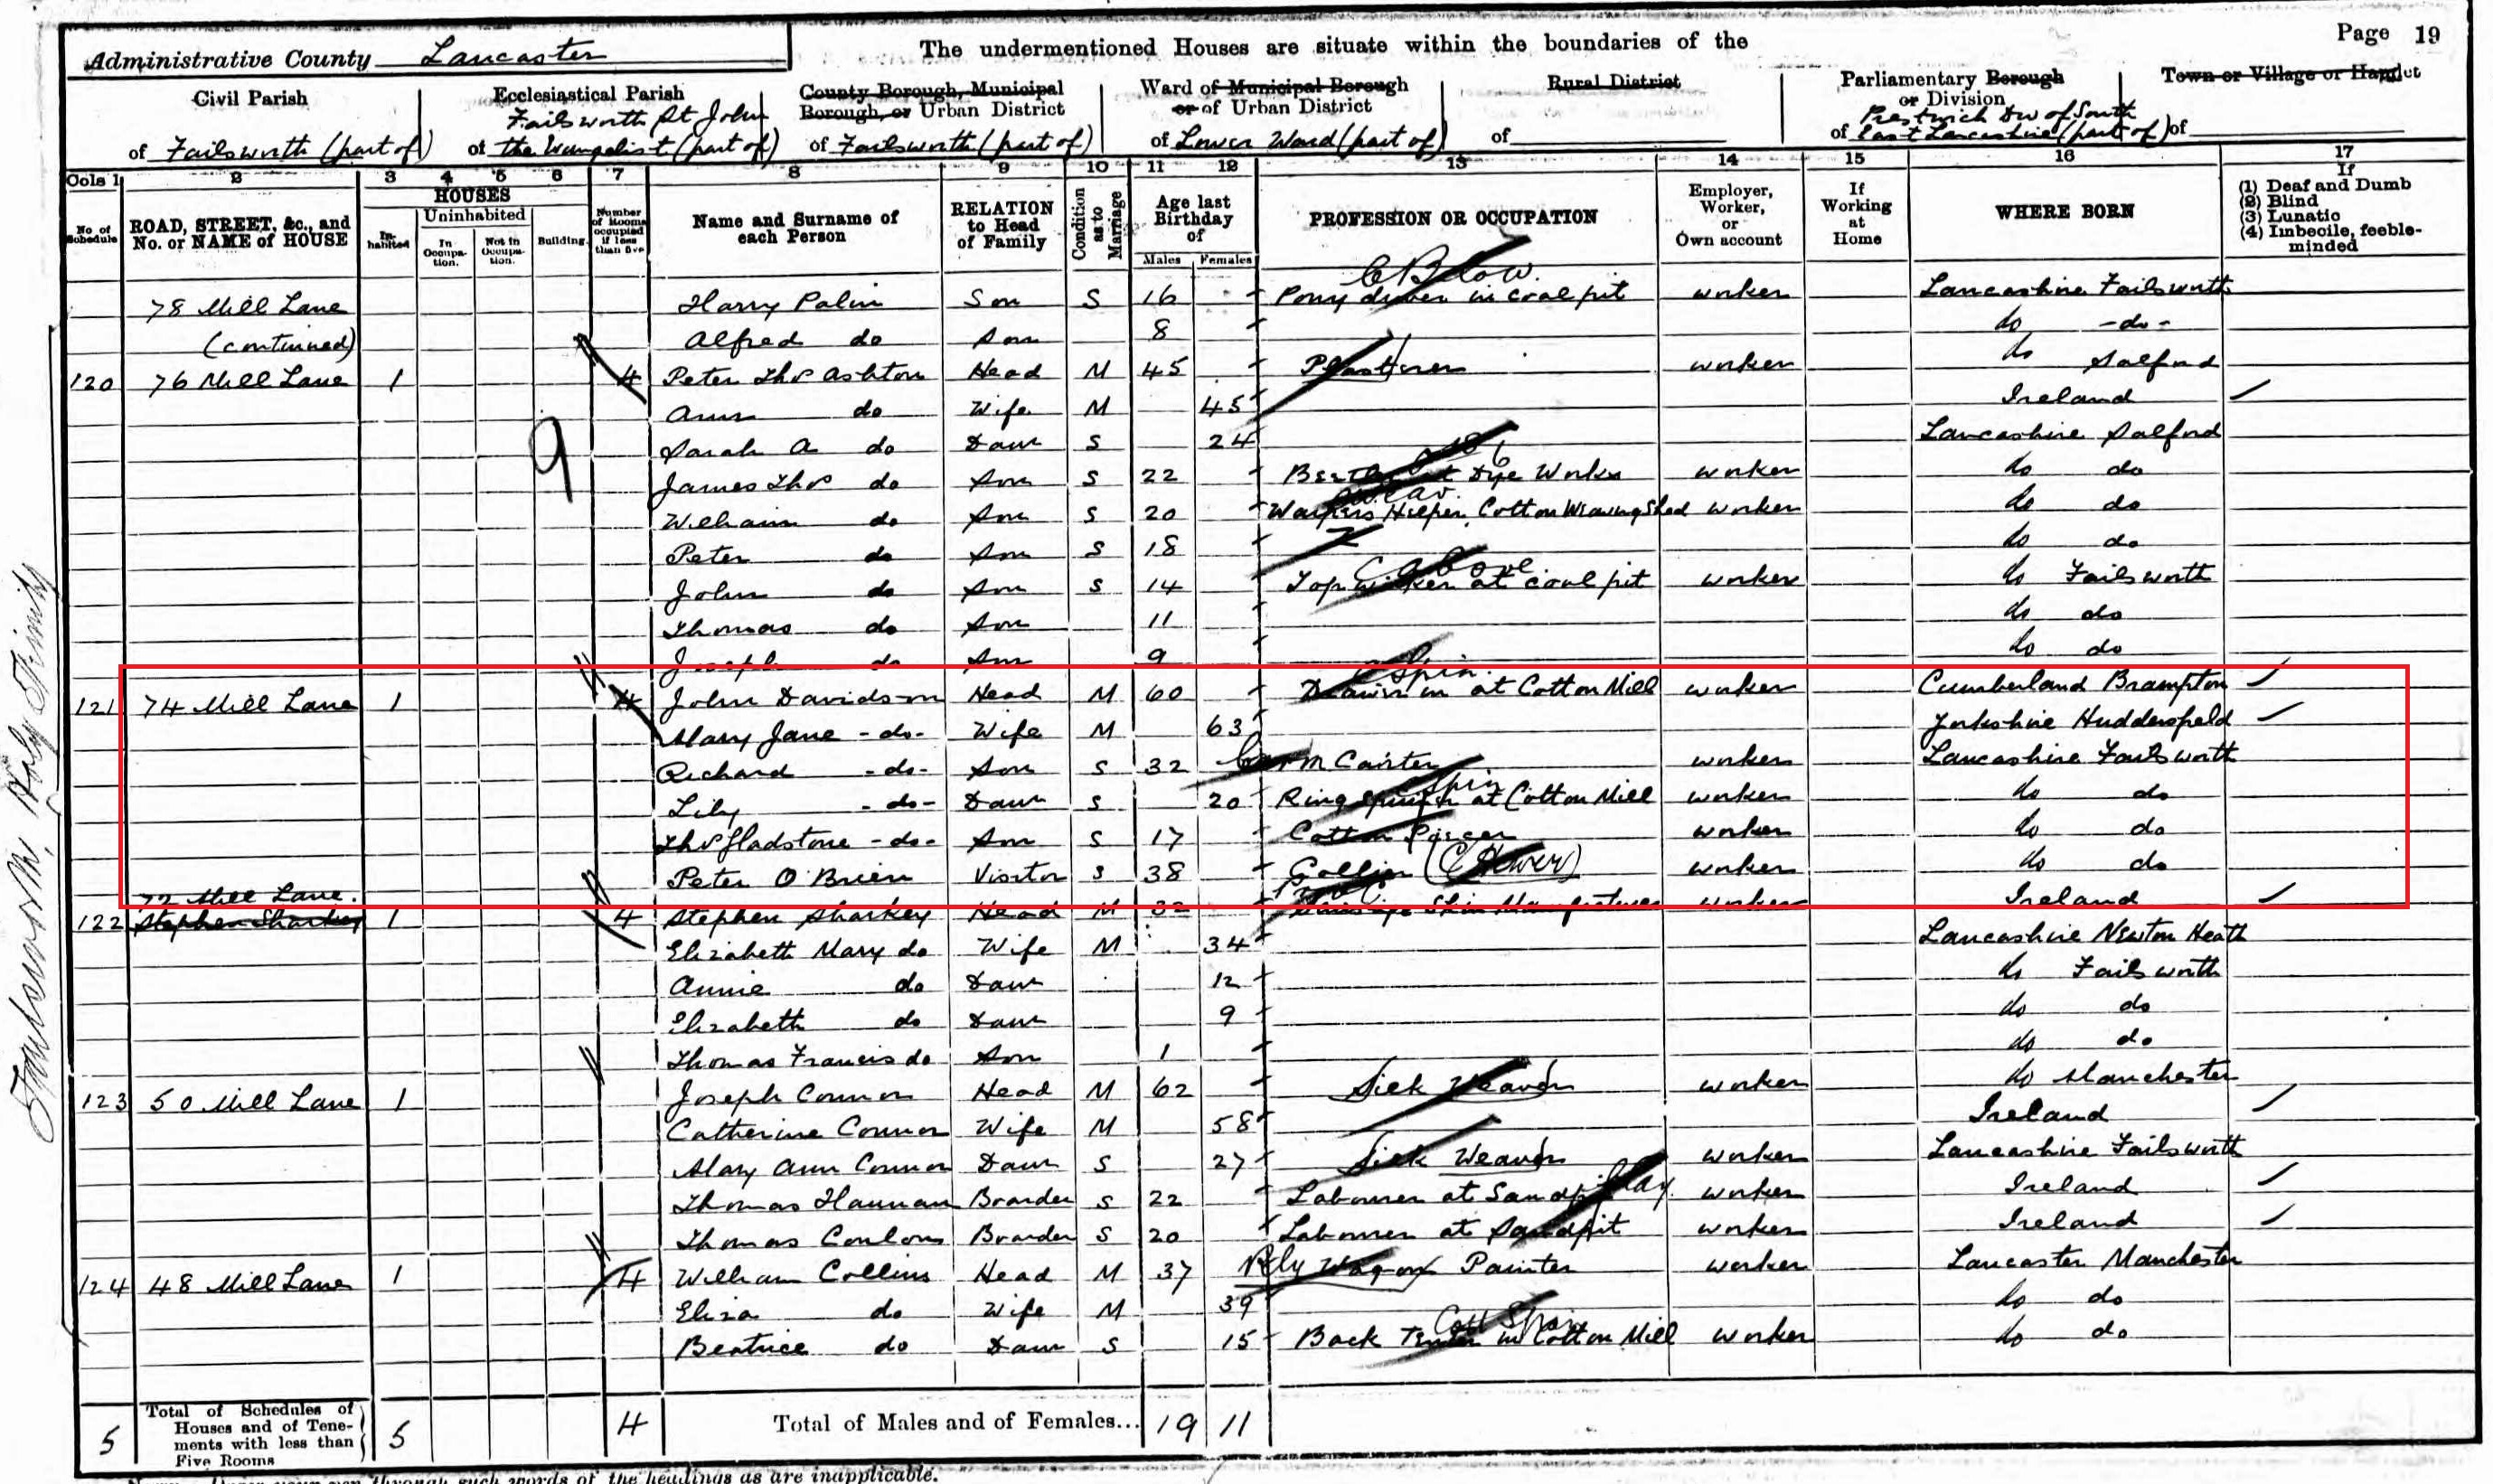 Page 19
Administrative County Lancaster
The undermentioned Houses are situate within the boundaries of the
Civil Parish
of Failsworth (part of)
Ecclesiastical Parish
Failsworth St John
of the Evangelist (part of)
County Borough, Municipal
Borough, or Urban District
of Failsworth (part of)
Ward of Municipal Borough
or of Urban District
of Lower Ward (part of)
Rural District
of
Parliamentary Borough
or Division
Prestwich Div of South
of East Lancashire (part of)
Town or Village or Hamlet
of
Cols 1 2 3 4 5 6 7 8 9 10 11 12 13 14 15 16 17
No of Schedule
ROAD, STREET, &c., and
No. or NAME of HOUSE
HOUSES
In-habited
Uninhabited
In Occupa-tion.
Not in Occupa-tion.
Building
Number of Rooms occupied if less than five
Name and Surname of
each Person
RELATION
to Head
of Family
Condition as to Marriage
Age last
Birthday
of
Males Females
PROFESSION OR OCCUPATION
Employer,
Worker,
or
Own account
If
Working
at
Home
WHERE BORN
If
(1) Deaf and Dumb
(2) Blind
(3) Lunatic
(4) Imbecile, feeble-
minded
78 Mill Lane Harry Palin Son S 16 Pony driver in coal pit worker Lancashire Failsworth
(continued) Alfred do Son 8 do -do-
120 76 Mill Lane 1 4 Peter Thos Ashton Head M 45 Plasterer worker do Salford
Ann do Wife M 45 Ireland
Sarah A do Daur S 24 Lancashire Salford
James Thos do Son S 22 at Dye Works worker do do
9
William do Son S 20 Warpers Helper Cotton Weaving Shed worker do do
Peter do Son S 18 do do
John do Son S 14 Top worker at coal pit worker do Failsworth
Thomas do Son 11 do do
Joseph do Son 9 do do
121 74 Mill Lane 1 4 John Davidson Head M 60 at Cotton Mill worker Cumberland Brampton
Mary Jane -do- Wife M 63 Yorkshire Huddersfield
Richard -do- Son S 32 Carter worker Lancashire Failsworth
Lily -do- Daur S 20 Ring at Cotton Mill worker do do
Thos Gladstone -do- Son S 17 Cotton Piecer worker do do
Peter O'Brien Visitor S 38 Collier (Hewer) worker do do
72 Mill Lane.
122 Stephen Sharkey 1 4 Stephen Sharkey Head M 32 worker Ireland
Elizabeth Mary do Wife M 34 Lancashire Newton Heath
Annie do Daur 12 do Failsworth
Elizabeth do Daur 9 do do
Thomas Francis do Son 1 do do
123 50 Mill Lane 1 Joseph Connor Head M 62 Silk Weaver worker do Manchester
Catherine Connor Wife M 58 Ireland
Mary Ann Connor Daur S 27 Silk Weaver worker Lancashire Failsworth
Thomas Hannan Boarder S 22 Labourer at Sandpit worker Ireland
Thomas Conlon Boarder S 20 Labourer at Sandpit worker Ireland
124 48 Mill Lane 1 4 William Collins Head M 37 Rly Wagon Painter worker Lancaster Manchester
Eliza do Wife M 39 do do
Beatrice do Daur S 15 Back Tenter in Cotton Mill worker do do
5
Total of Schedules of
Houses and of Tene-
ments with less than
Five Rooms
5 4
Total of Males and of Females... 19 11
Failsworth, Holy Trinity
through such words of the headings as are inapplicable.